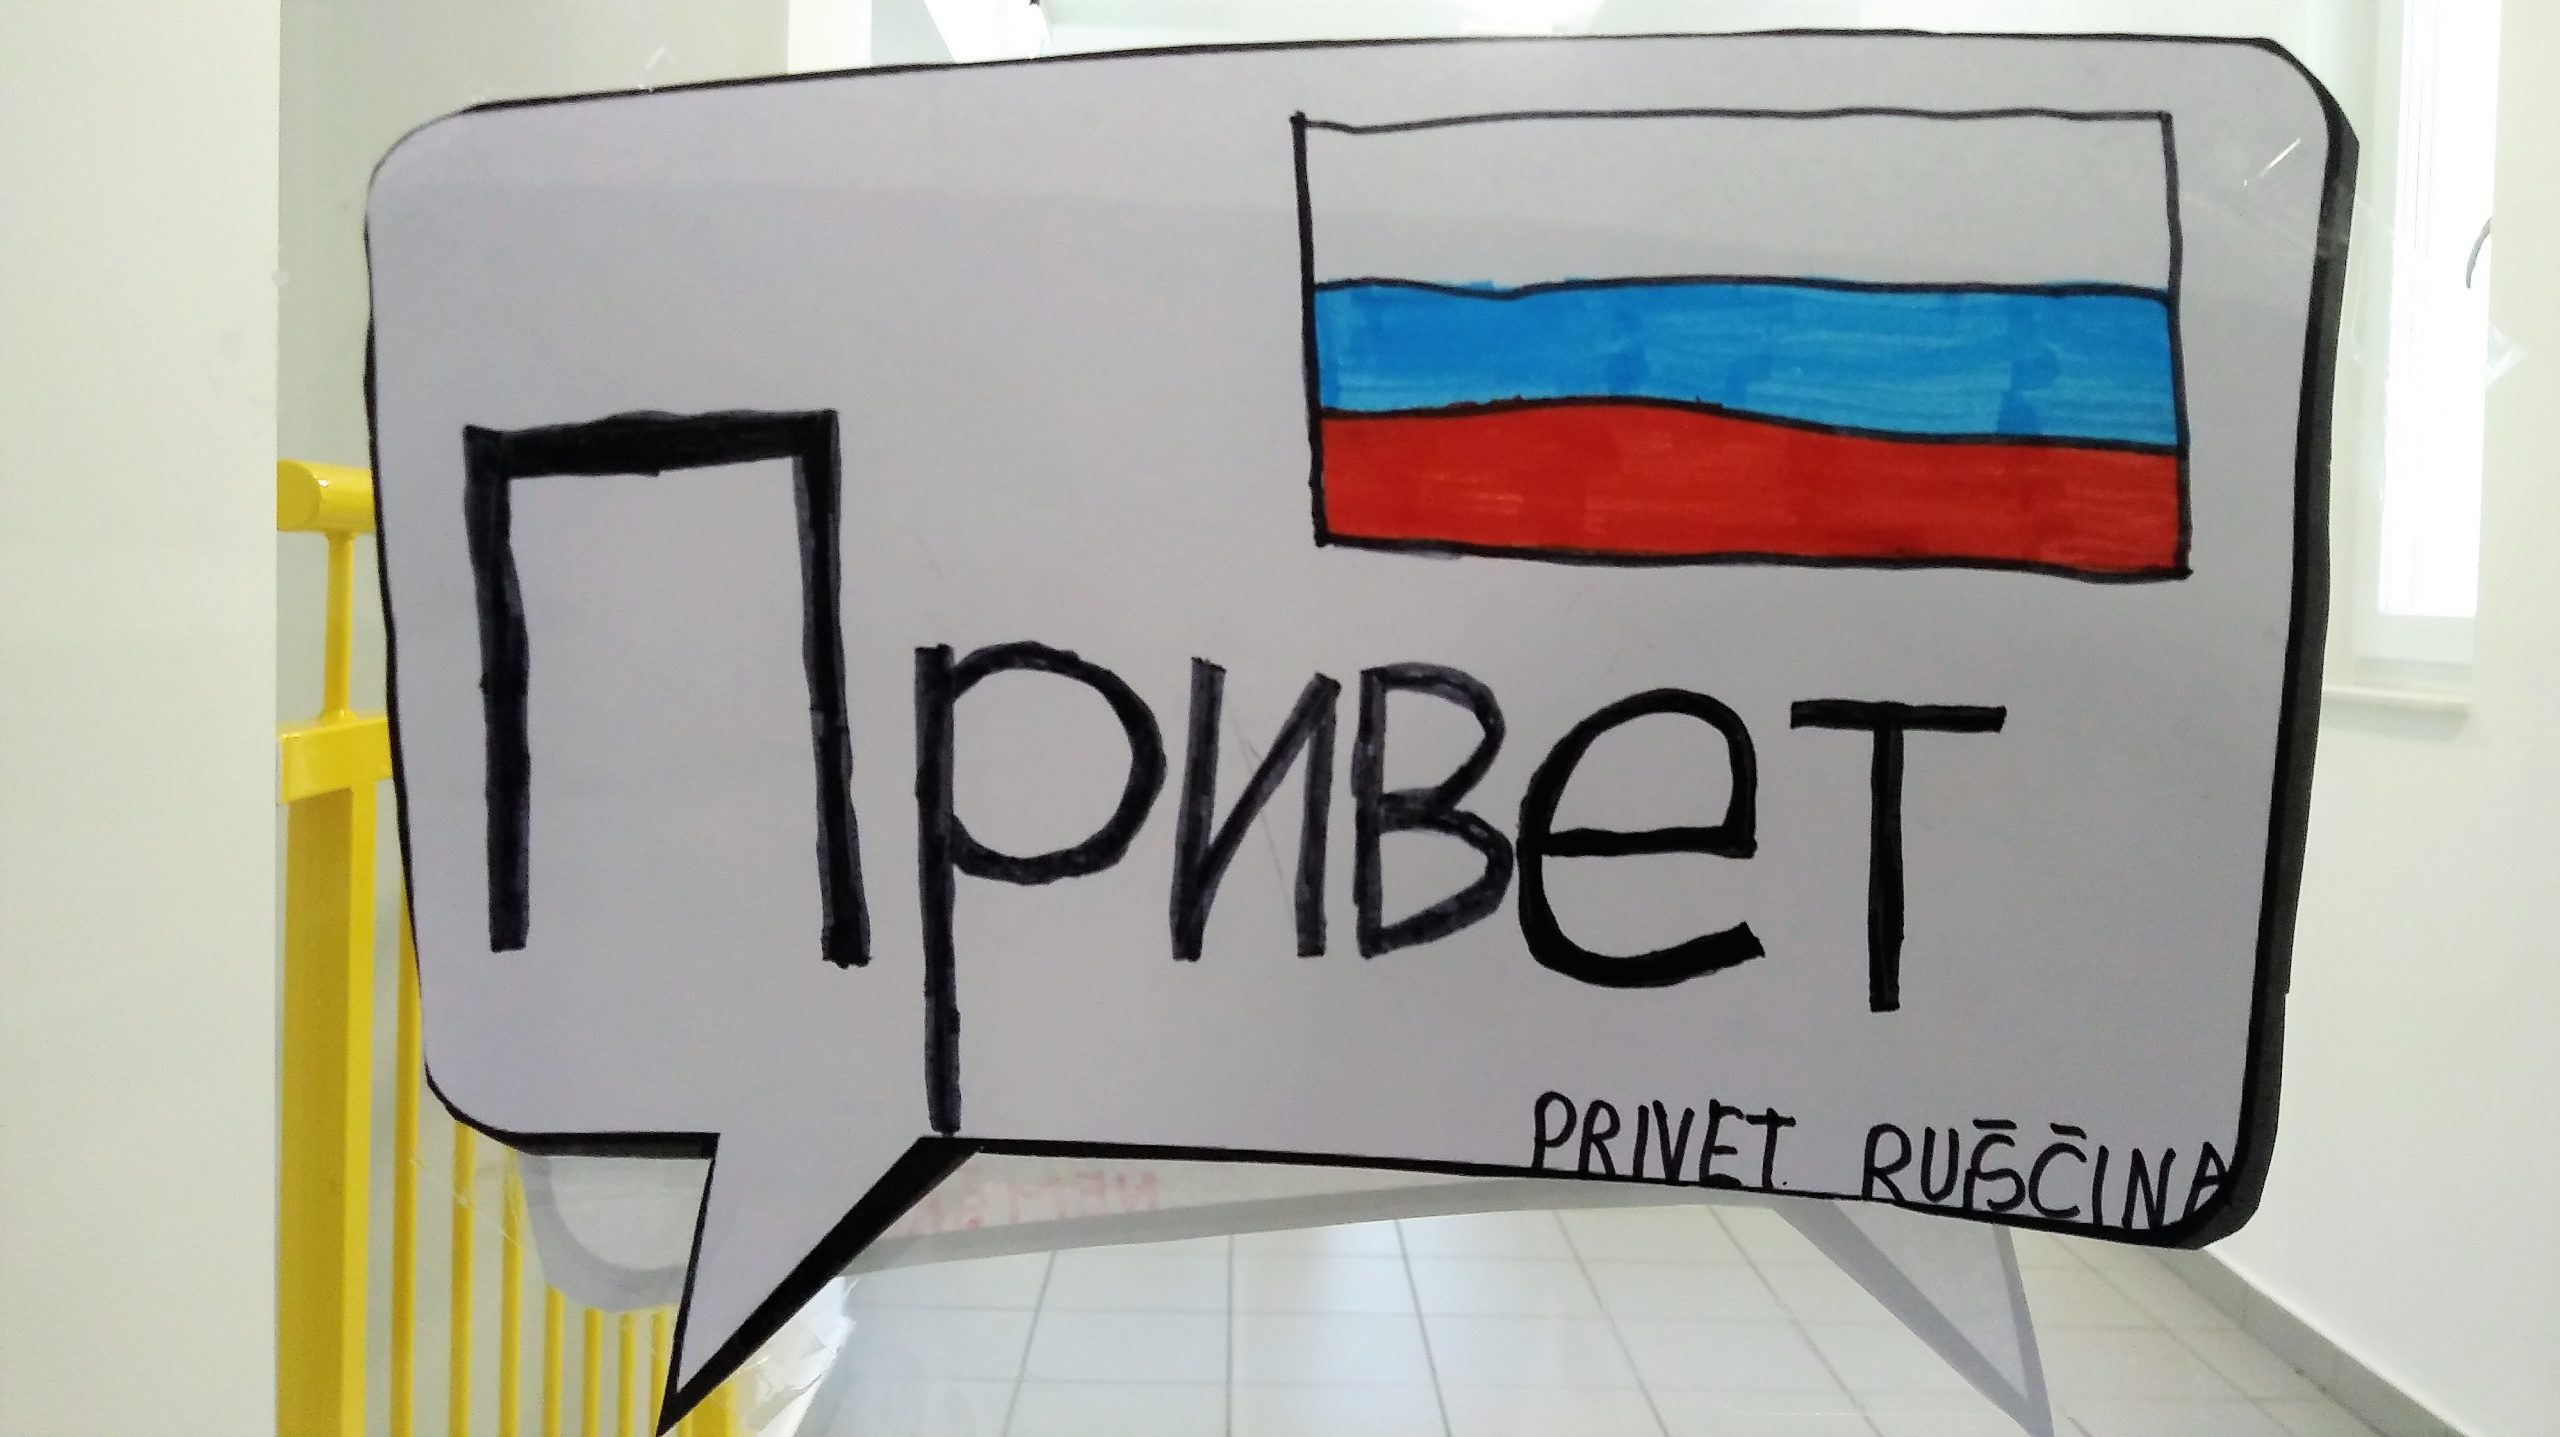 Привет
PRIVET RUŠČINA